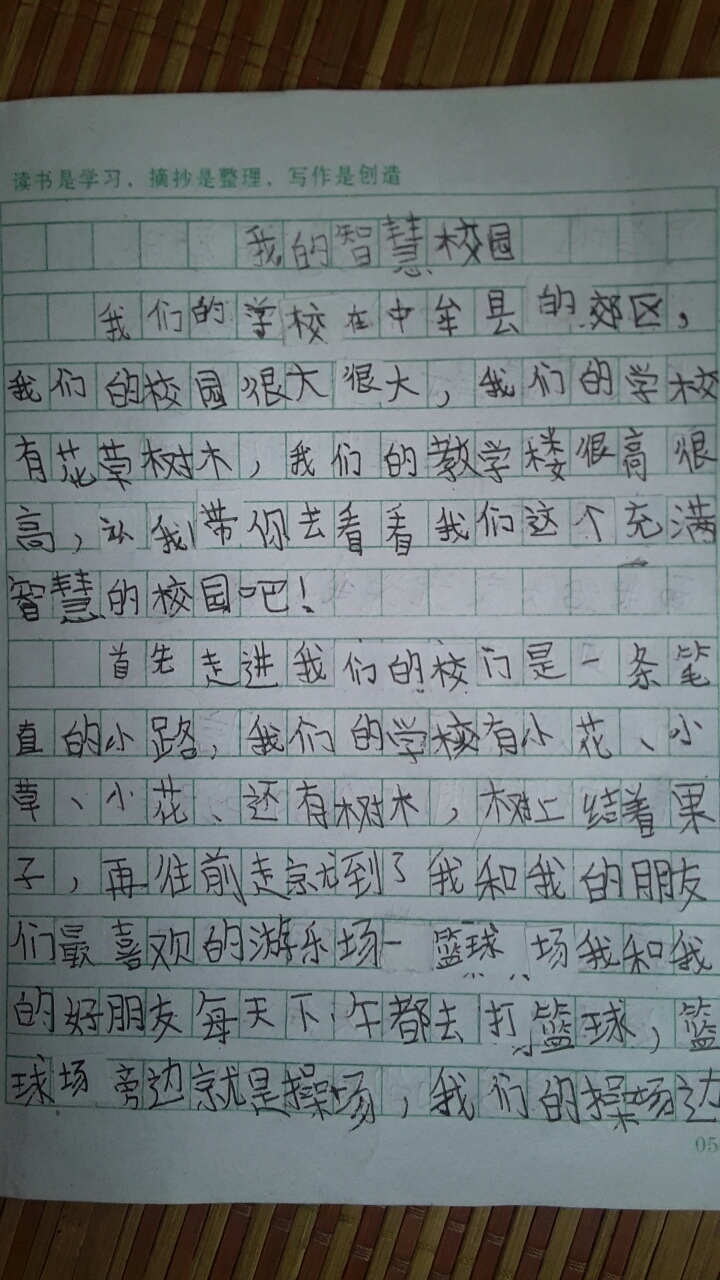 读书是学习、摘抄是整理、写作是创造
我的智慧校园
我们的学校在中牟县的郊区，
我们的校园很大很大，我们的学校
有花草树木，我们的教学楼很高很
高，让我带你去看看我们这个充满
智慧的校园吧！
首先走进我们的校门是一条笔
直的小路，我们的学校有小花、小
草、小花、还有树木，树上结着果
子，再往前走就到了我和我的朋友
们最喜欢的游乐场一篮球场我和我
的好朋友每天下午都去打篮球，篮
球场旁边就是操场，我们的操场边
05